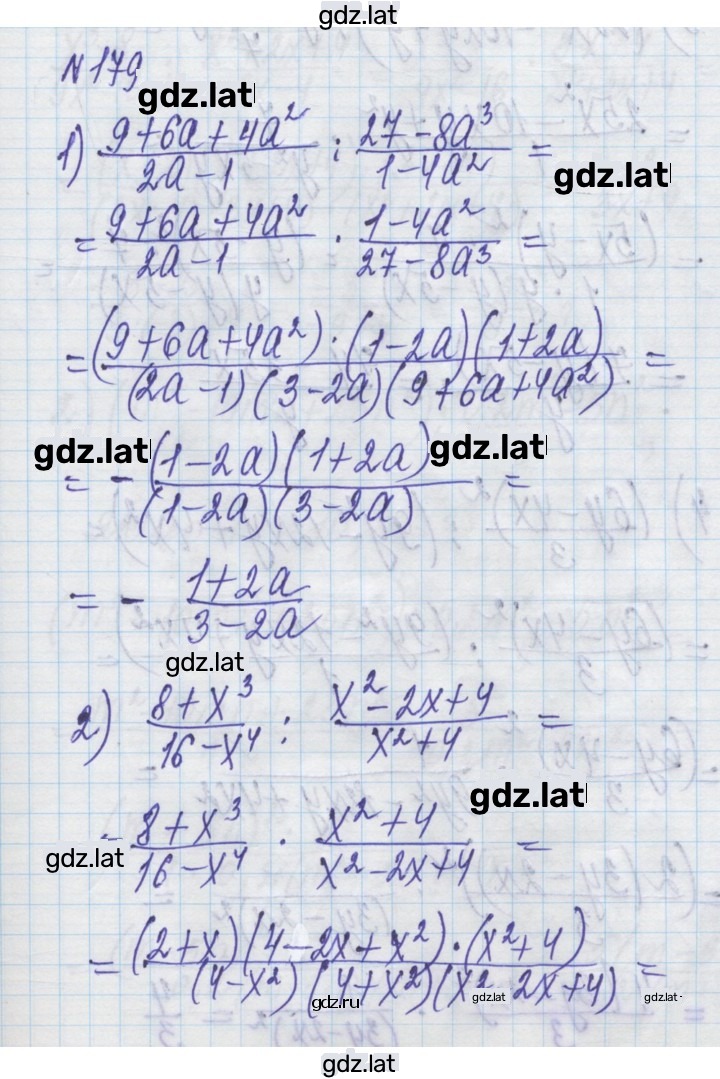 gdz.lat
N179
gdz.lat
1) (9+6a+4a²)/(2a-1) : (27-8a³)/(1-4a²) =
gdz.lat
= (9+6a+4a²)/(2a-1) · (1-4a²)/(27-8a³) =
= ((9+6a+4a²)·(1-2a)(1+2a))/((2a-1)(3-2a)(9+6a+4a²)) =
gdz.lat gdz.lat
= - ((1-2a)(1+2a))/((1-2a)(3-2a)) =
= - (1+2a)/(3-2a)
gdz.lat
2) (8+x³)/(16-x⁴) : (x²-2x+4)/(x²+4) =
gdz.lat
- (8+x³)/(16-x⁴) · (x²+4)/(x²-2x+4) =
gdz.lat
= ((2+x)(4-2x+x²)·(x²+4))/((4-x²)(4+x²)(x² 2x+4)) =
gdz.ru gdz.lat gdz.lat
gdz.lat